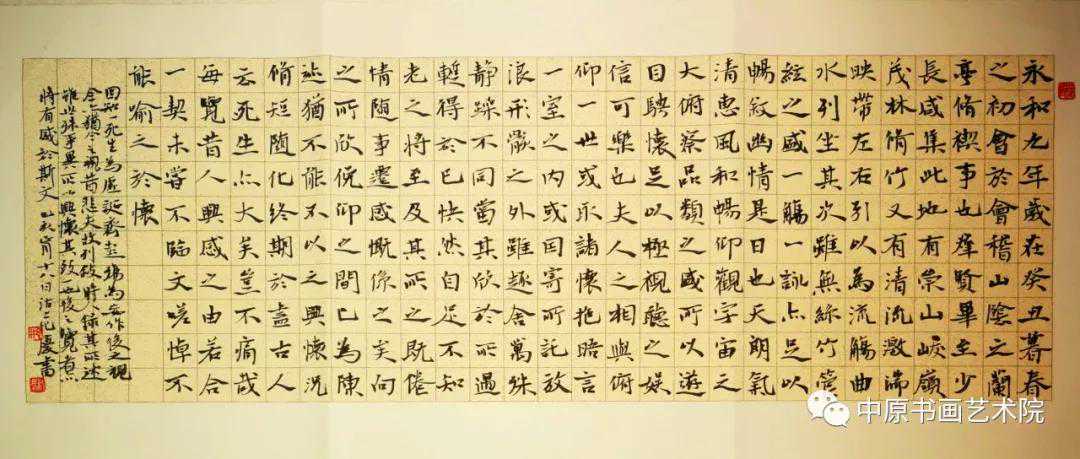 永和九年歲在癸丑暮春
之初會於會稽山陰之蘭
亭脩禊事也群賢畢至少
長咸集此地有崇山峻嶺
茂林脩竹又有清流激湍
映帶左右引以為流觴曲
水列坐其次雖無絲竹管
絃之盛一觴一詠亦足以
暢敘幽情是日也天朗氣
清惠風和暢仰觀宇宙之
大俯察品類之盛所以遊
目騁懷足以極視聽之娛
信可樂也夫人之相與俯
仰一世或取諸懷抱晤言
一室之內或因寄所託放
浪形骸之外雖趣舍萬殊
靜躁不同當其欣於所遇
暫得於己快然自足不知
老之將至及其所之既倦
情隨事遷感慨係之矣向
之所欣俛仰之間已為陳
迹猶不能不以之興懷況
脩短隨化終期於盡古人
云死生亦大矣豈不痛哉
每覽昔人興感之由若合
一契未嘗不臨文嗟悼不
能喻之於懷
固知一死生為虛誕齊彭殤為妄作後之視
今亦猶今之視昔悲夫故列敘時人錄其所述
雖世殊事異所以興懷其致一也後之覽者亦
將有感於斯文
中原书画艺术院